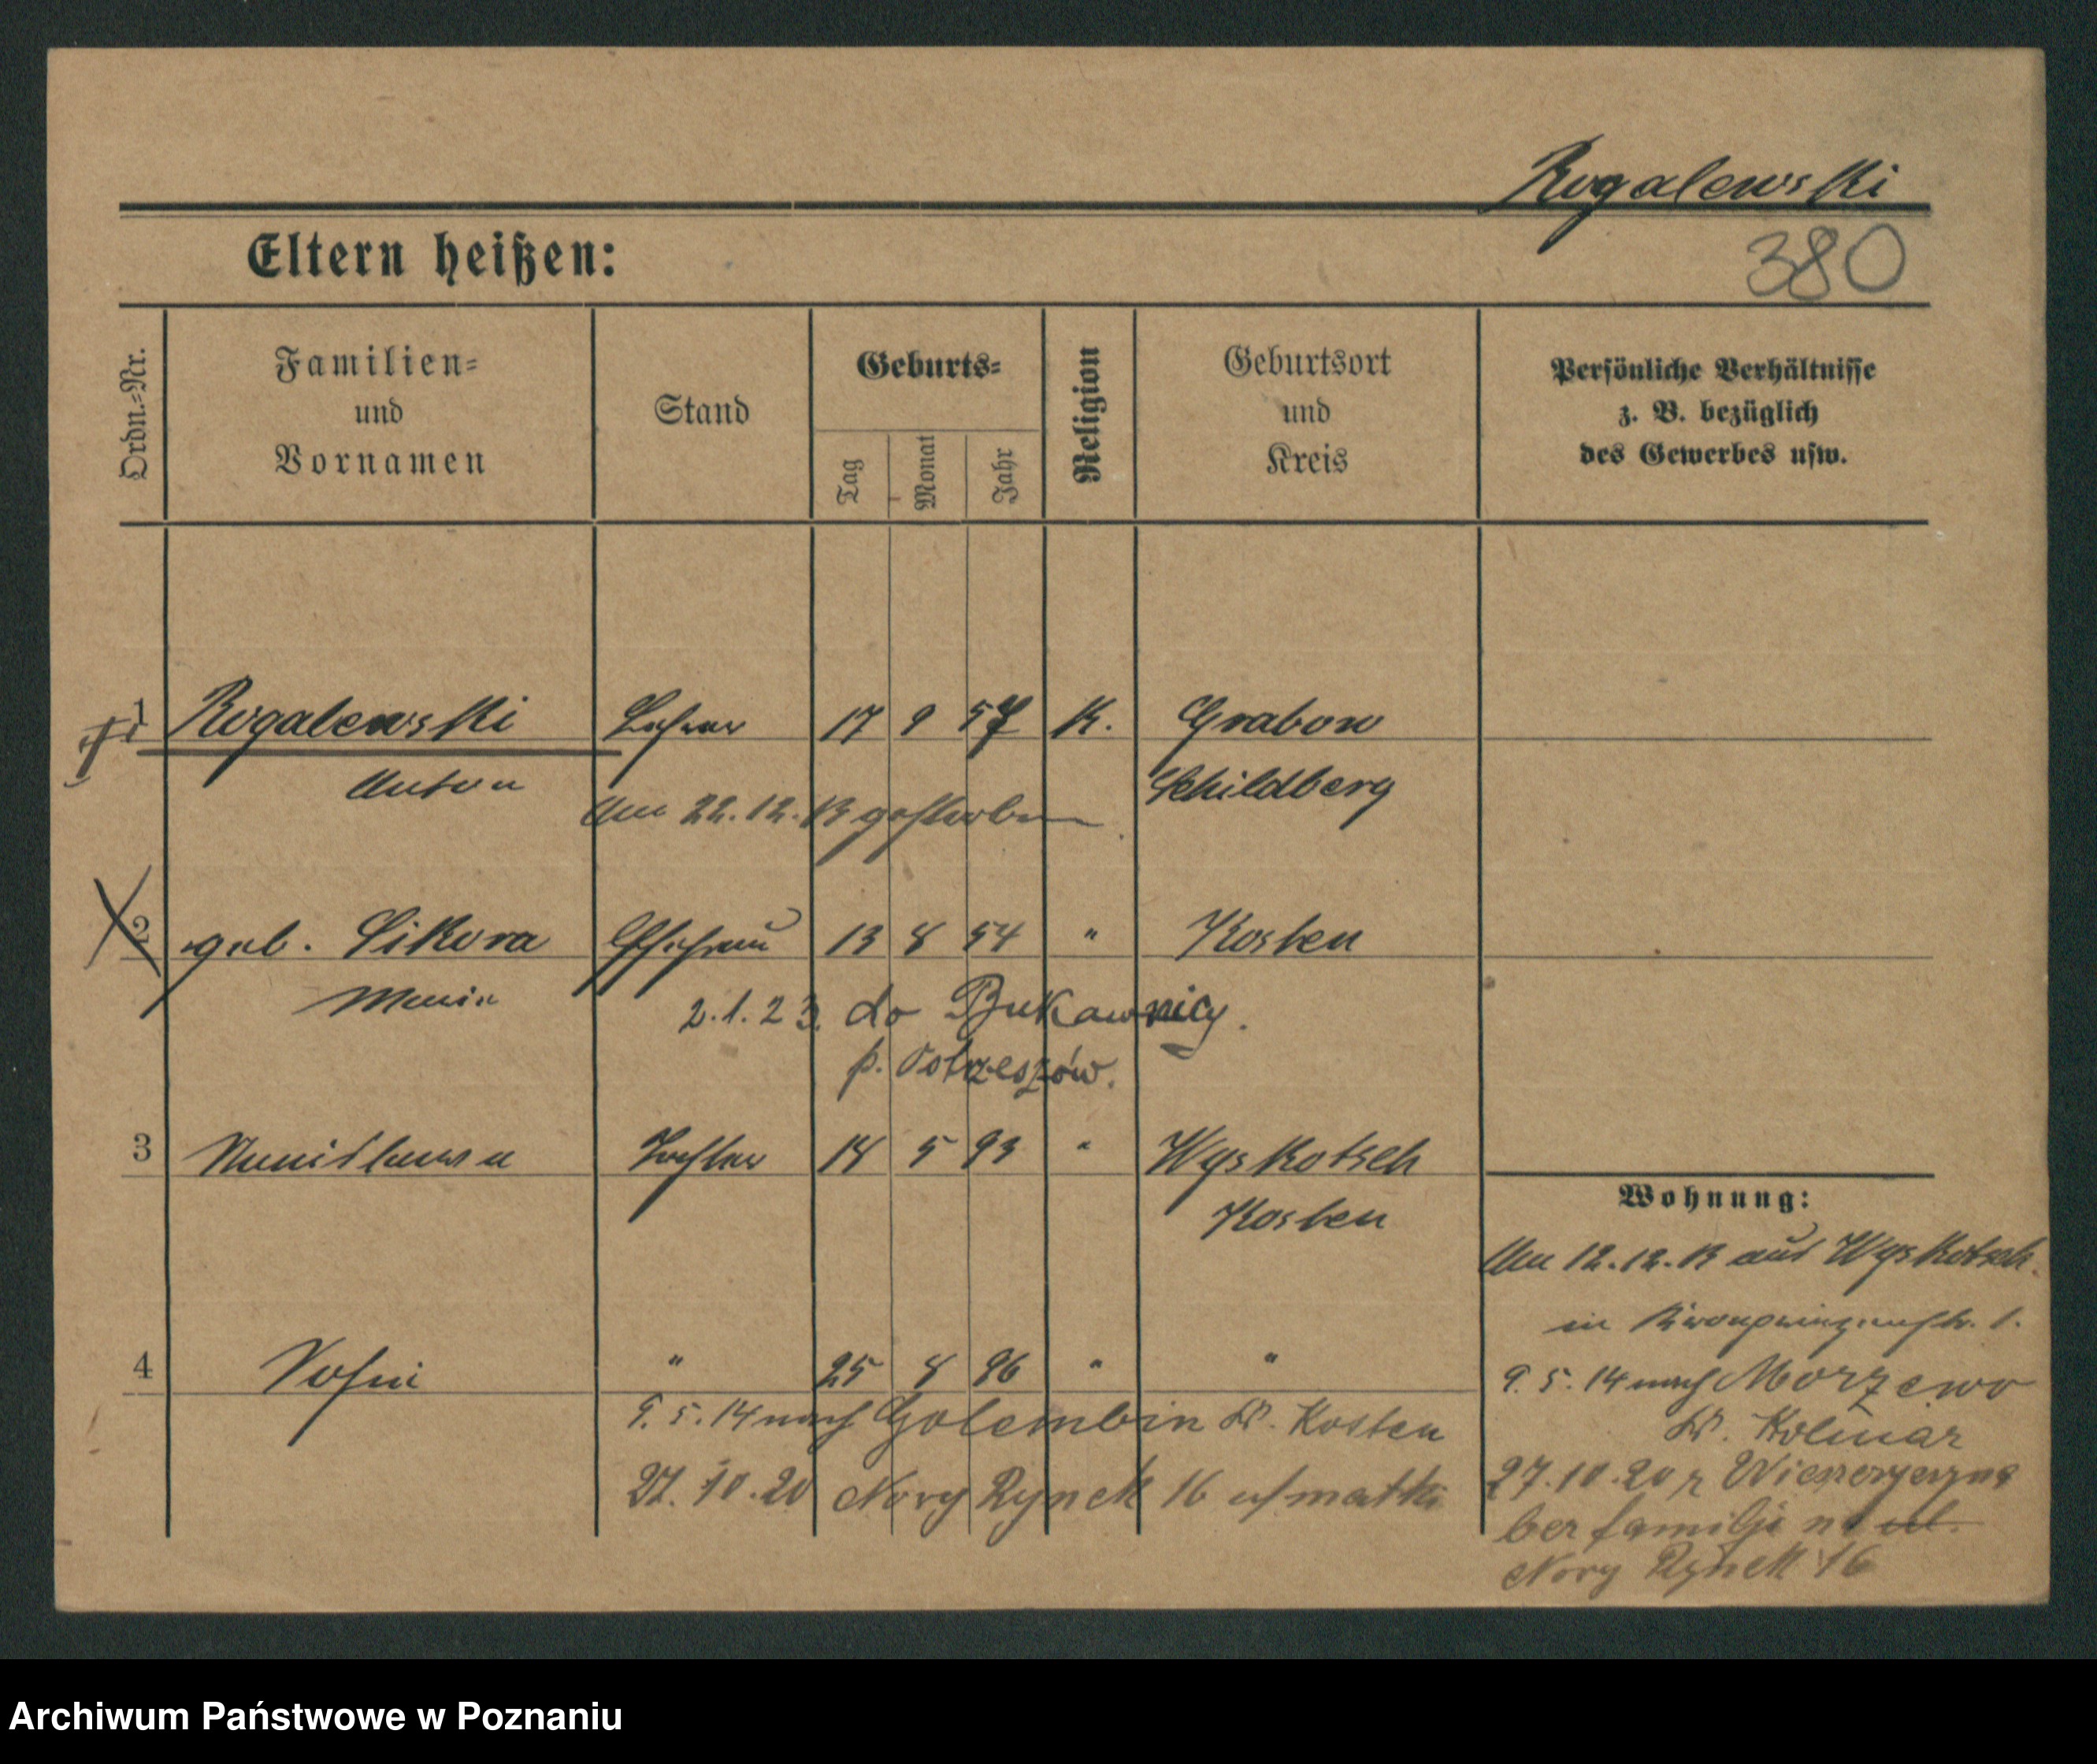 Rogalewski
Eltern heißen:
380
Ordn.-Nr.
Familien-
und
Vornamen
Stand
Geburts-
Tag
Monat
Jahr
Religion
Geburtsort
und
Kreis
Persönliche Verhältnisse
z. B. bezüglich
des Gewerbes usw.
1 Rogalewski Lehrer 17 9 57 K. Grabow
Anton Schildberg
Am 22.12.13 gestorben
2 geb. Sikora Ehefrau 13 8 54 " Kosten
Maria
2.1.23. do Bukawnicy.
p. Ostrzeszów.
3 Stanislawa Tochter 14 5 93 " Wyskotsch
Kosten
4 Sofia " 25 8 96 " "
9.5.14 nach Golembin Kr. Kosten
27.10.20 Nowy Rynek 16 matki
Wohnung:
Am 12.12.13 aus Wyskotsch
in Kronprinzenstr. 1.
9.5.14 nach Morzewo
Kr. Kolmar
27.10.20 z
bez familji na ul.
Nowy Rynek 16
Archiwum Państwowe w Poznaniu